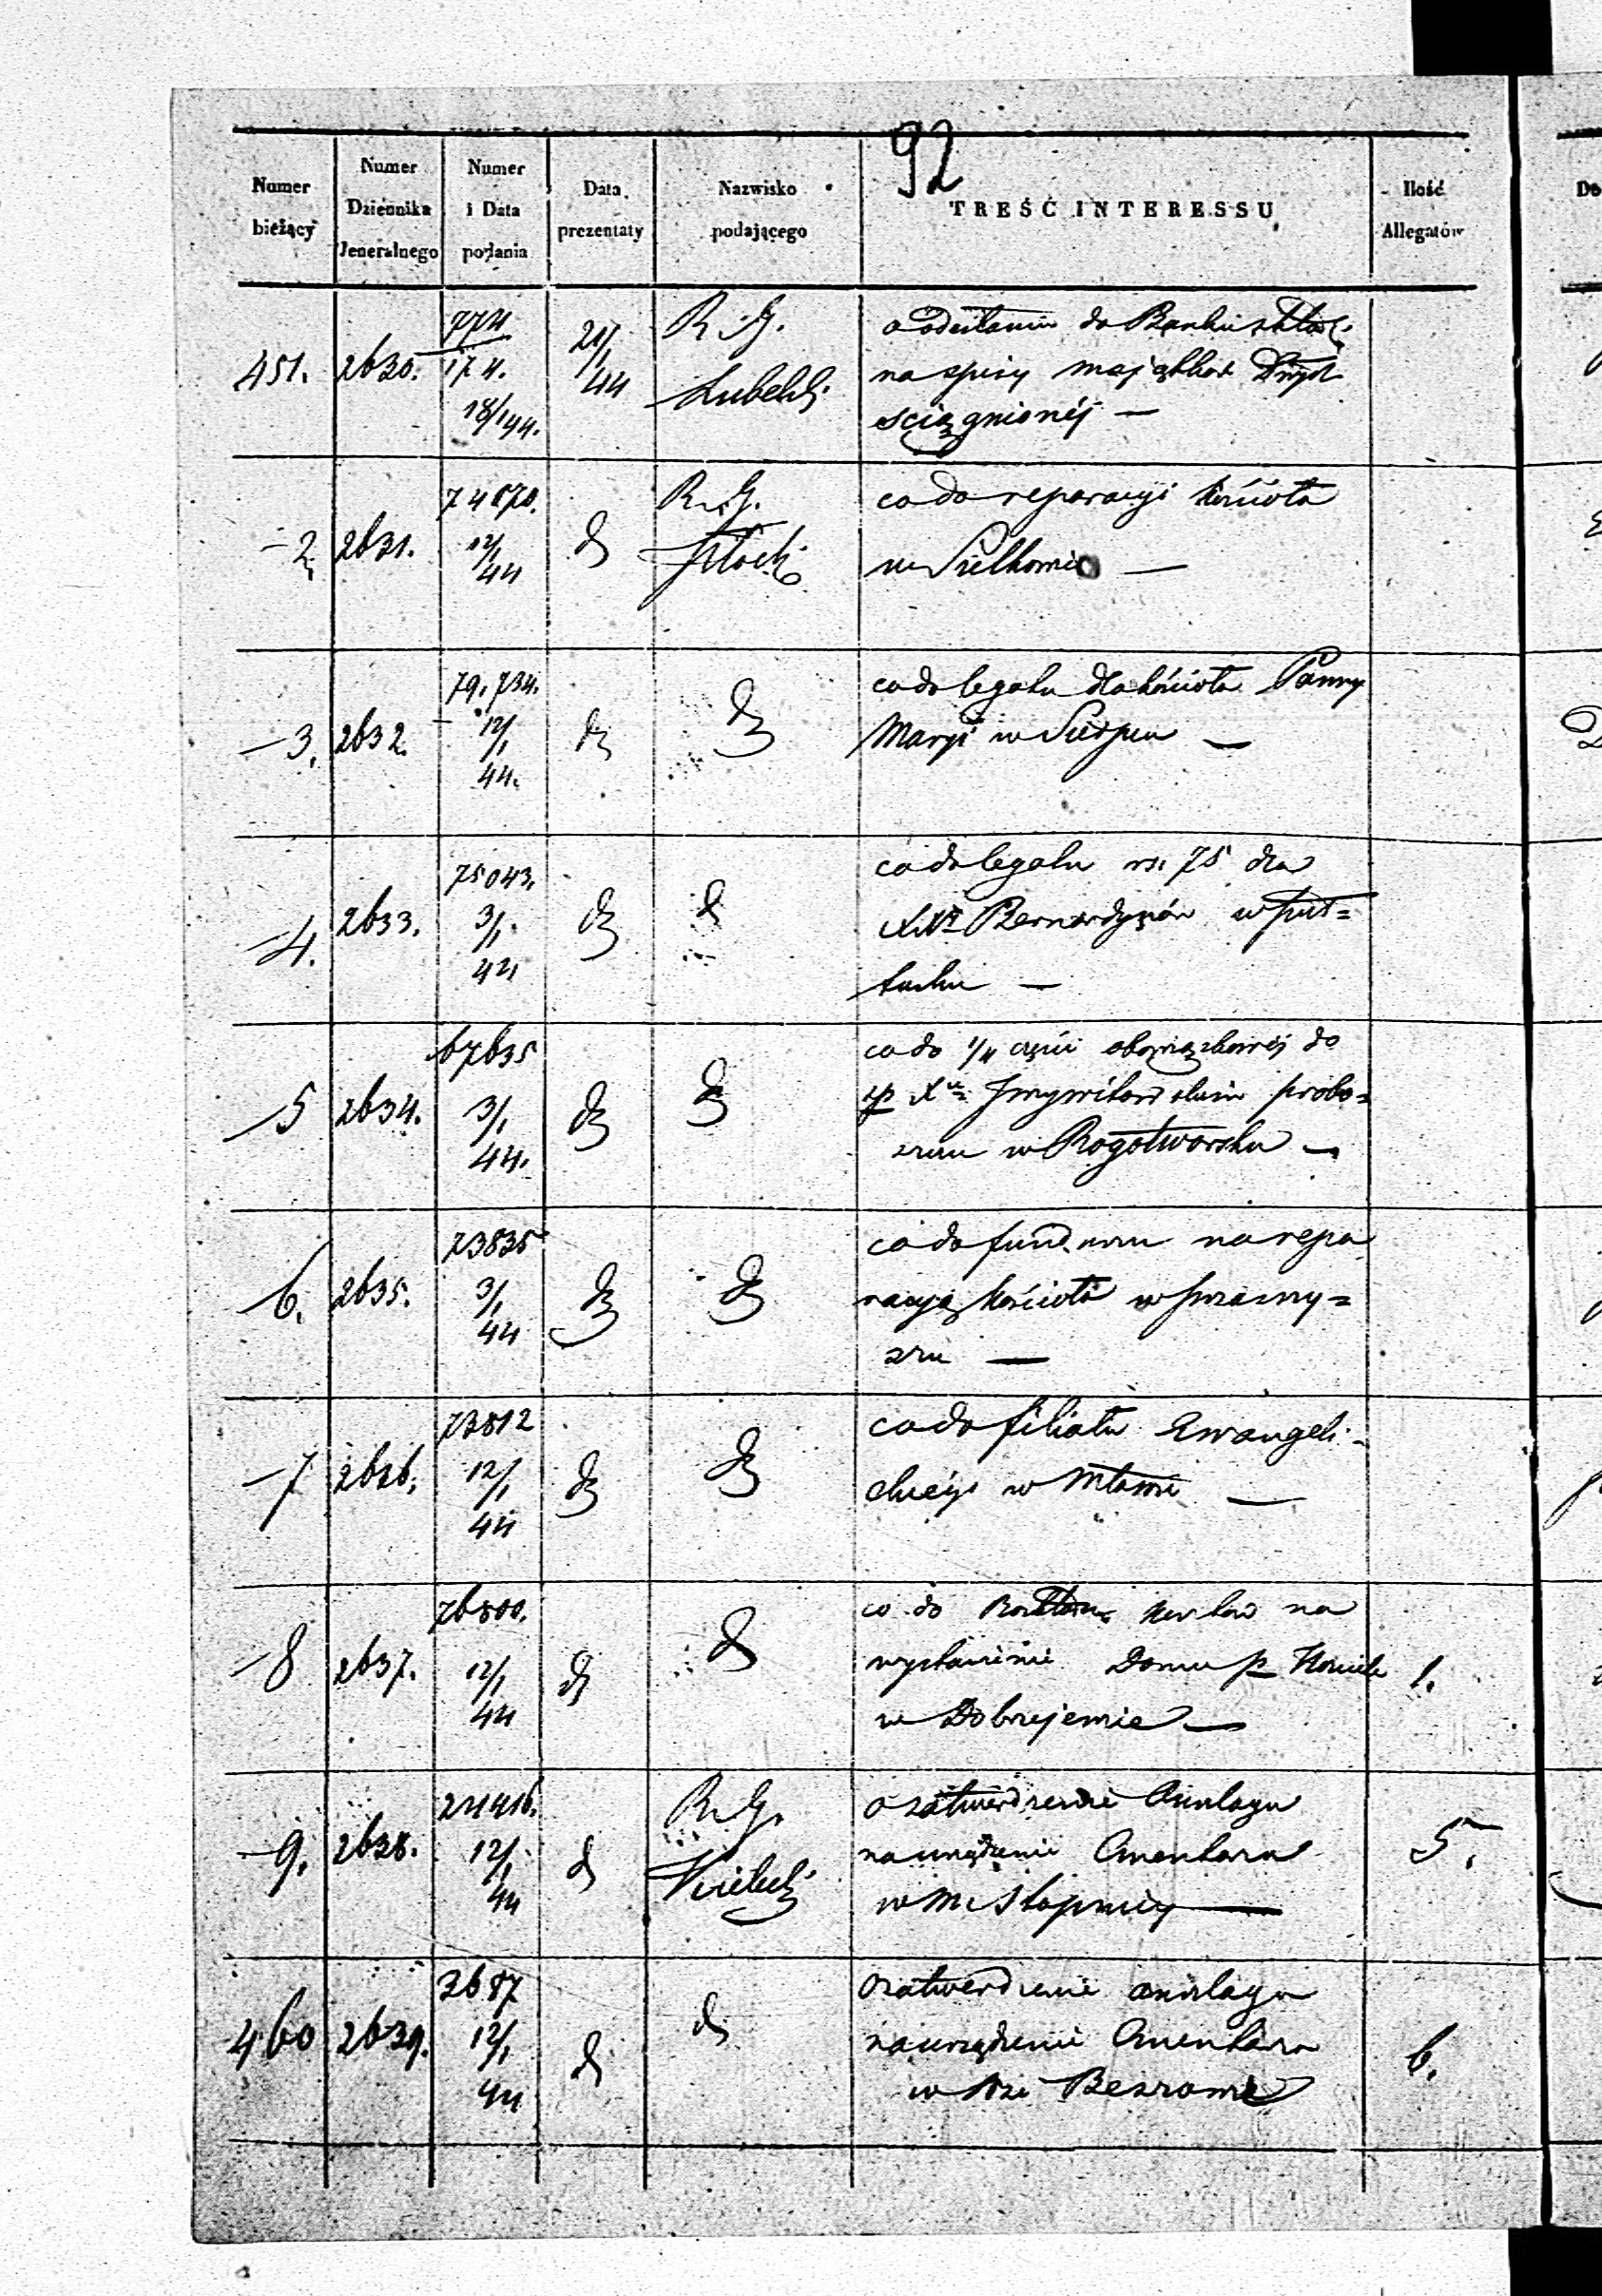 92
Numer bieżący
Numer Dziennika Jeneralnego
Numer i Data podania
Data prezentaty
Nazwisko podającego
TREŚĆ INTERESSU
Ilość Allegatów
451. 2630. 774 174. 18/1 44. 21/1 44 R. G. Lubelski o odesłaniu do Banku składk.
na spisy majątków
ściągnionéj —
– 2, 2631. 74870. 12/1 44 d R. G. Płocki co do reparacyi kościoła
w —
– 3. 2632. 79,734. 12/1 44. d d co do legatu dla kościoła Panny
Maryi w Sierpcu —
– 4. 2633. 75043. 3/1 44 d d co do legatu rs. 75 dla
XX Bernardynów w Puł=
tusku —
– 5 2634. 67635 3/1 44. d d co do 1/4 części obowiązkowéj do
probo=
szczu w Rogotworsku —
6. 2635. 73835 3/1 44 d d co do funduszu na repa
racyą kościoła w Przasny=
szu —
– 7 2636. 73812 12/1 44 d d co do filiału Ewangeli-
ckiego w Mławie —
– 8 2637. 76800. 12/1 44 d d co do na
wystawienie Domu p. Kościele 1.
w —
– 9. 2638. 24416. 12/1 44 d R. G. Kielecki o zatwierdzenie Anszlagu
na urządzenie Cmentarza 5.
w M. Stopnicy —
460 2639. 3687 12/1 44 d d o zatwierdzenie anszlagu
na urządzenie Cmentarza 6.
w Wsi